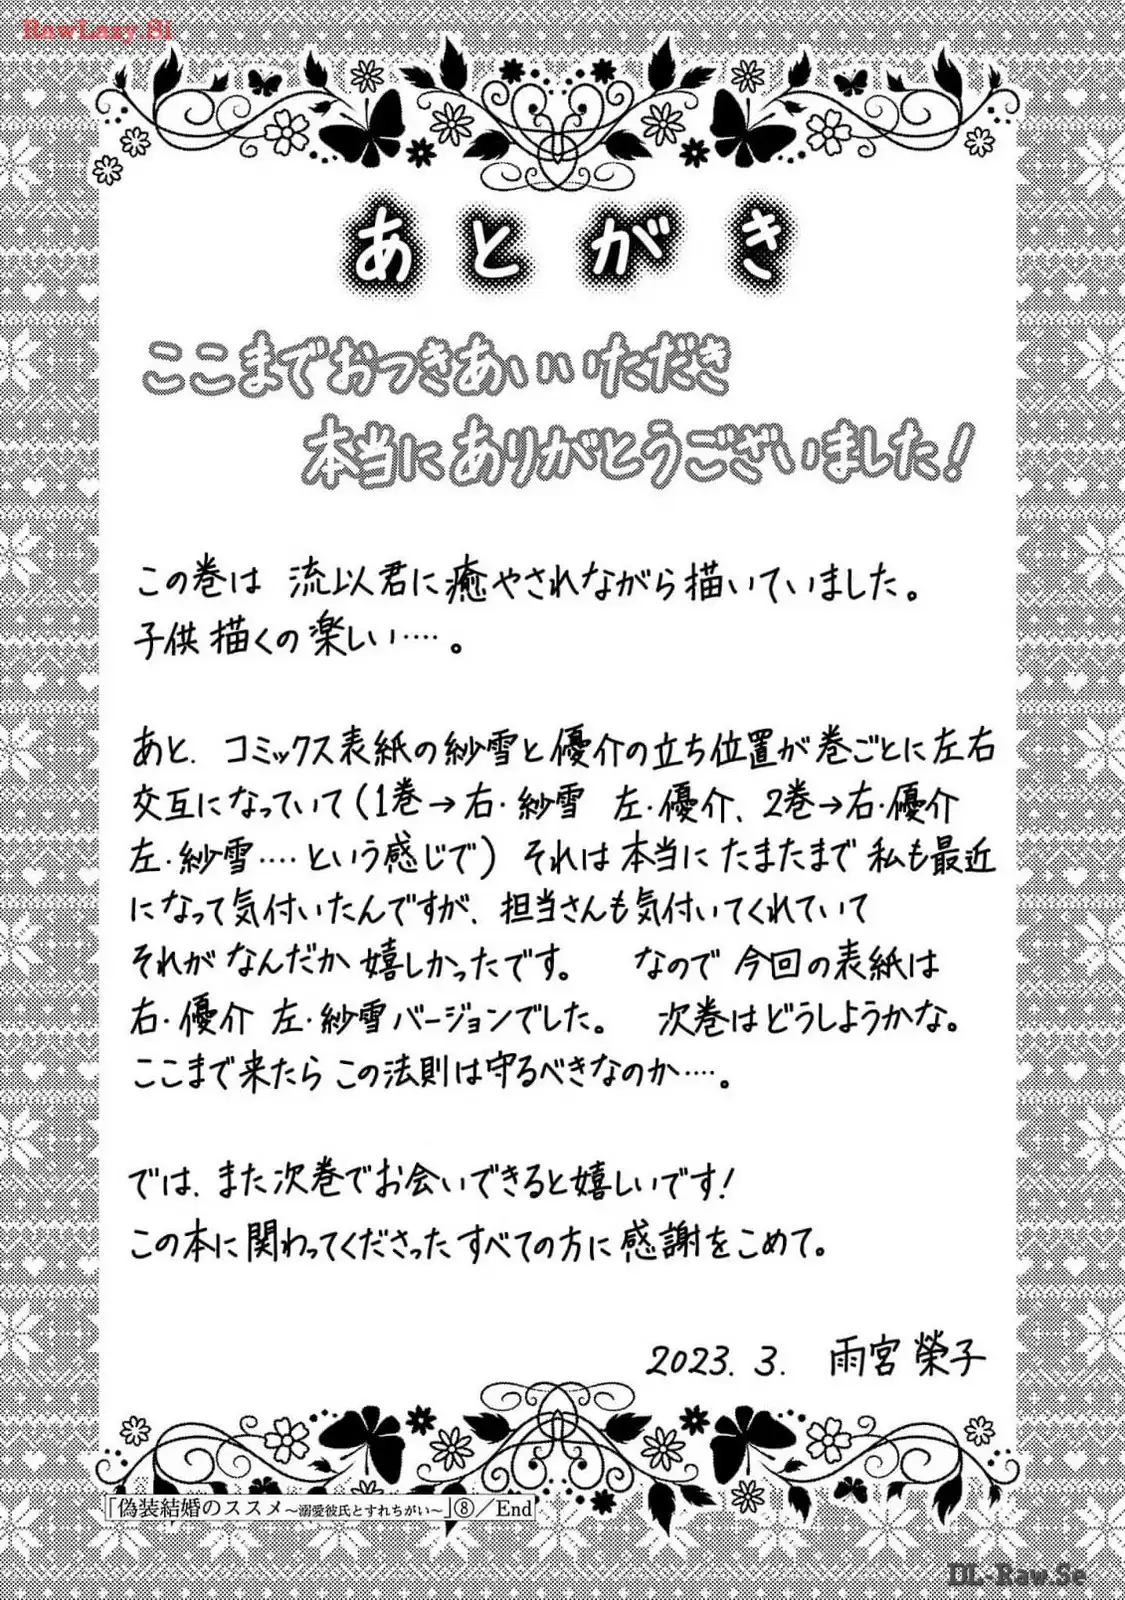 RawLazy.Si
あとがき
ここまでおつきあいいただき
本当にありがとうございました!
この巻は 流以君に癒やされながら描いていました。
子供描くの楽しい‥‥。
あと、コミックス表紙の紗雪と優介の立ち位置が巻ごとに左右
交互になっていて(1巻→右・紗雪 左・優介、2巻→右・優介
左・紗雪‥‥という感じで) それは本当にたまたまで私も最近
になって気付いたんですが、担当さんも気付いてくれていて
それがなんだか嬉しかったです。 なので今回の表紙は
右・優介 左・紗雪バージョンでした。 次巻はどうしようかな。
ここまで来たらこの法則は守るべきなのか‥‥。
では、また次巻でお会いできると嬉しいです!
この本に関わってくださったすべての方に感謝をこめて。
2023.3. 雨宮榮子
「偽装結婚のススメ~溺愛彼氏とすれちがい~」⑧/End
DL-Raw.Se